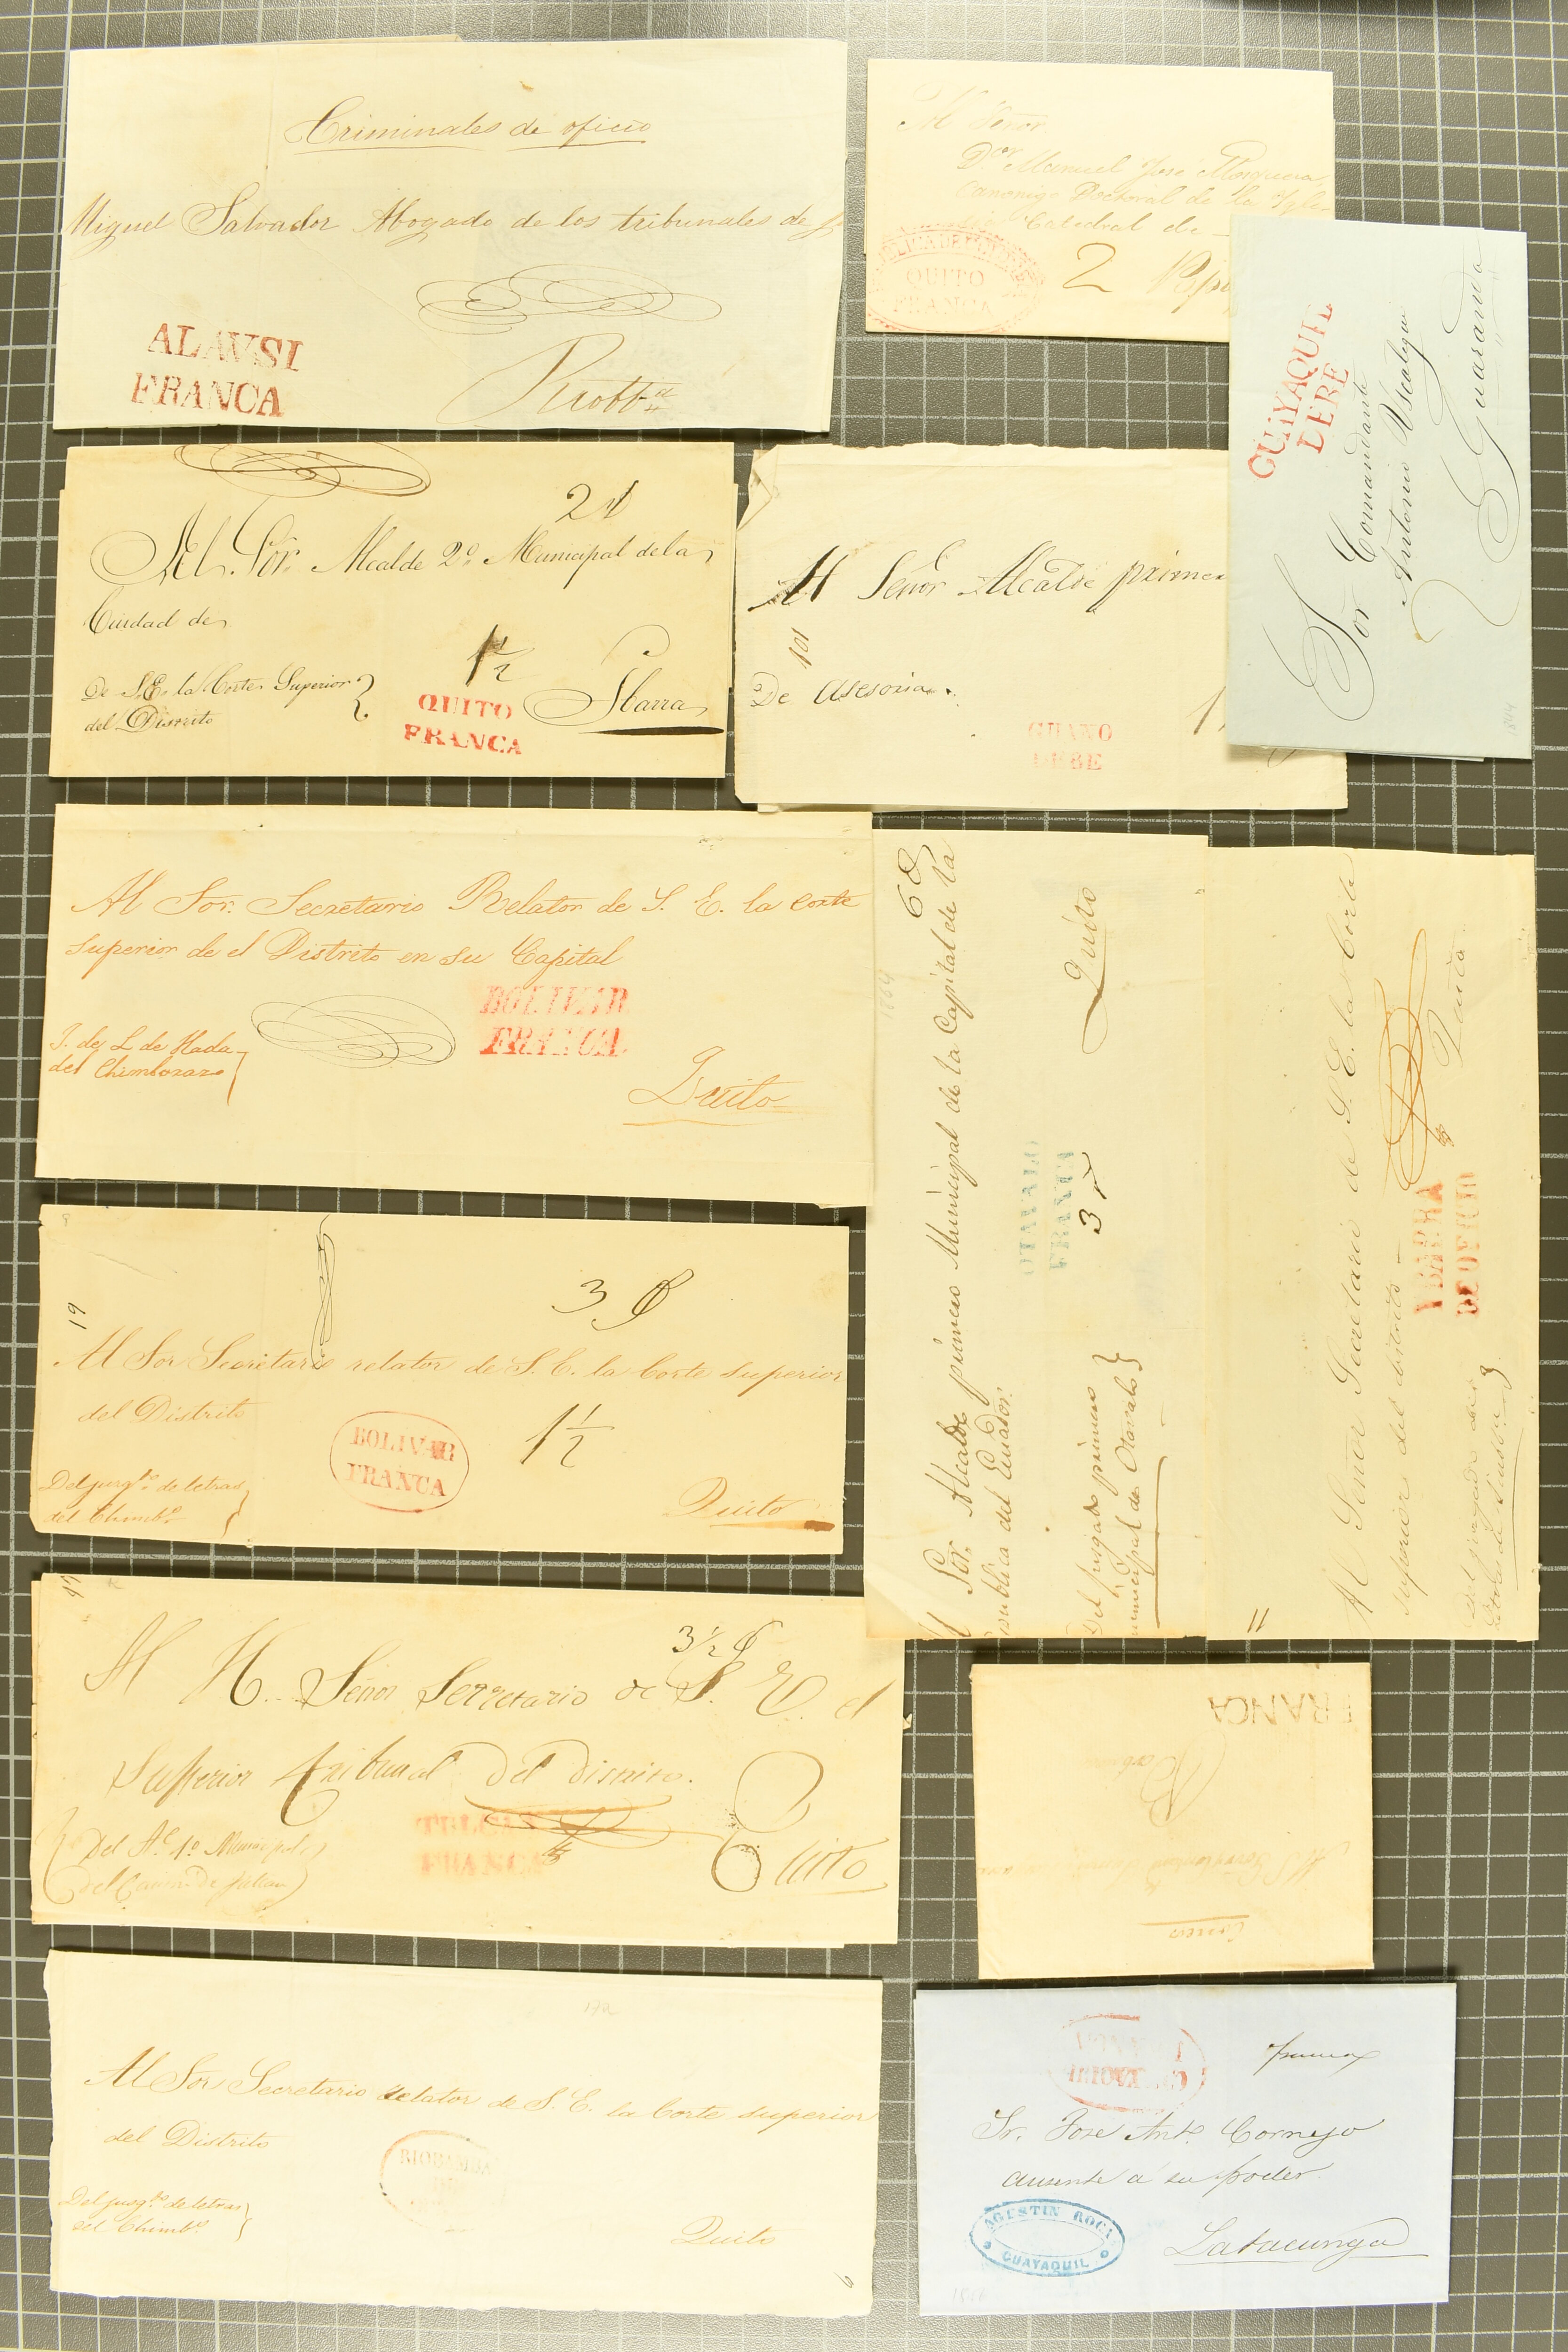 Criminales de oficio
Miguel Salvador Abogado de los tribunales de
ALAUSI
FRANCA
Al Señor
Dor Manuel José Mosquera
Canonigo Doctoral de la Ygle
Catedral de
QUITO
FRANCA
2
GUAYAQUIL
DEBE
Sor Comandante
Antonio Uscategui
Guaranda
1844
2
Al Sor. Alcalde 2o. Municipal de la
Ciudad de
1 1/2
De S.E. la Corte Superior
del Distrito
QUITO
FRANCA
Ibarra
Al Señor Alcalde primer
101
De Asesoria
GUANO
DEBE
Al Sor. Secretario Relator de S. E. la Corte
superior de el Distrito en su Capital
BOLIVAR
FRANCA
J. de L de Hada
del Chimborazo
Quito
68
1864
Sor. Alcalde primero Municipal de la Capital de la
publica del Ecuador.
OTAVALO
FRANCA
3
Quito
Del jusgado primero
municipal de Otavalo
11
Al Señor Secretario de S. E. la Corte
superior del distrito
YBARRA
DE OFICIO
Quito
19
3
Al Sor Secretario relator de S. E. la Corte superior
del Distrito
1 1/2
BOLIVAR
FRANCA
Del jusgto. de letras
del Chimbo.
Quito
3 1/2
Al H. Señor Secretario de S. E. el
Superior tribunal del distrito.
TULCAN
FRANCA
Del Ale. 1o. Municipal
del Canton de Tulcan
Quito
FRANCA
Correo
172
Al Sor Secretario relator de S. E. la Corte superior
del Distrito
RIOBAMBA
Del jusgto. de letras
del Chimbo.
Quito
6
franca
Sr. Jose Anto. Cornejo
ausente á su poder.
AGUSTIN ROCA
GUAYAQUIL
Latacunga